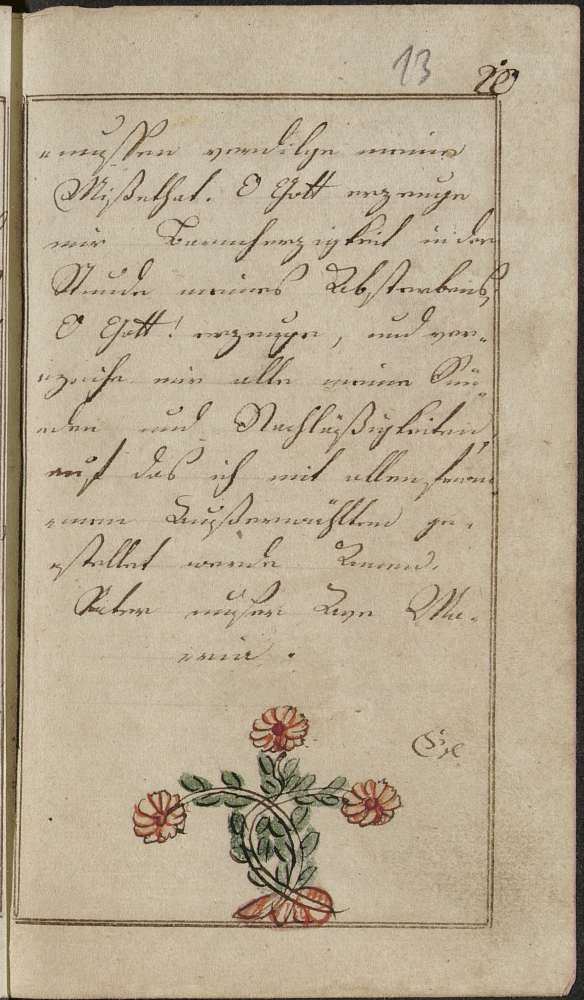 13
müssen verdilge meine
Mißethat. O Gott erzeuge
mir Barmherzigkeit in der
Stunde meines Absterbens,
O Gott! erzeuge, und ver-
zeihe mir alle meine Sün
den und Nachläßigkeiten,
auf das ich mit allen from
men Außerwählten ge-
stellet werde Amen.
Vater unser Ave Ma-
ria.